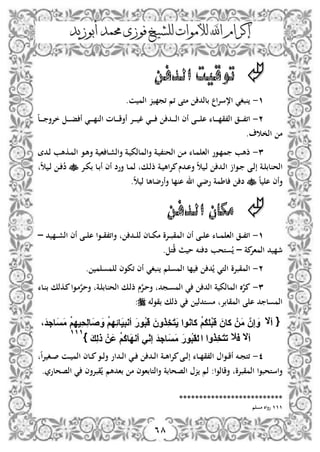 إكرام الله للأموات للشيخ فوزى محمد أبوزيد
توقيت الدفن
١- ينبغي الإسراع بالدفن متى تم تجهيز الميت.
٢- اتفق الفقهاء على أن الدفن في غير أوقات النهي أفضل خروجاً
من الخلاف.
٣- ذهب جمهور العلماء من الحنفية والمالكية والشافعية وهو المذهب لدى
الحنابلة إلى جواز الدفن ليلاً وعدم كراهية ذلك، لما ورد أن أبا بكر دُفن ليلاً،
وأن علياً دفن فاطمة رضي الله عنها وأرضاها ليلاً.
مكان الدفن
١- اتفق العلماء على أن المقبرة مكان للدفن، واتفقوا على أن الشهيد –
شهيد المعركة – يُستحب دفنه حيث قُتل.
٢- المقبرة التي يُدفن فيها المسلم ينبغي أن تكون للمسلمين.
٣- كرَّه المالكية الدفن في المسجد، وحرَّم ذلك الحنابلة، وحرَّموا كذلك بناء
المساجد على المقابر، مستدلين في ذلك بقوله ﷺ:
{ أَلَا وَإِنَّ مَنْ كَانَ قَبْلَكُمْ كَانُوا يَتَّخِذُونَ قُبُورَ أَنْبِيَائِهِمْ وَصَالِحِيهِمْ مَسَاجِدَ،
أَلَا فَلَا تَتَّخِذُوا الْقُبُورَ مَسَاجِدَ إِنِّي أَنْهَاكُمْ عَنْ ذَلِكَ }١١١
٤- تتجه أقوال الفقهاء إلى كراهة الدفن في الدار ولو كان الميت صغيراً،
واستحبوا المقبرة، وقالوا: لم يزل الصحابة والتابعون من بعدهم يُقبرون في الصحاري.
************************
١١١ رواه مسلم
٦٨